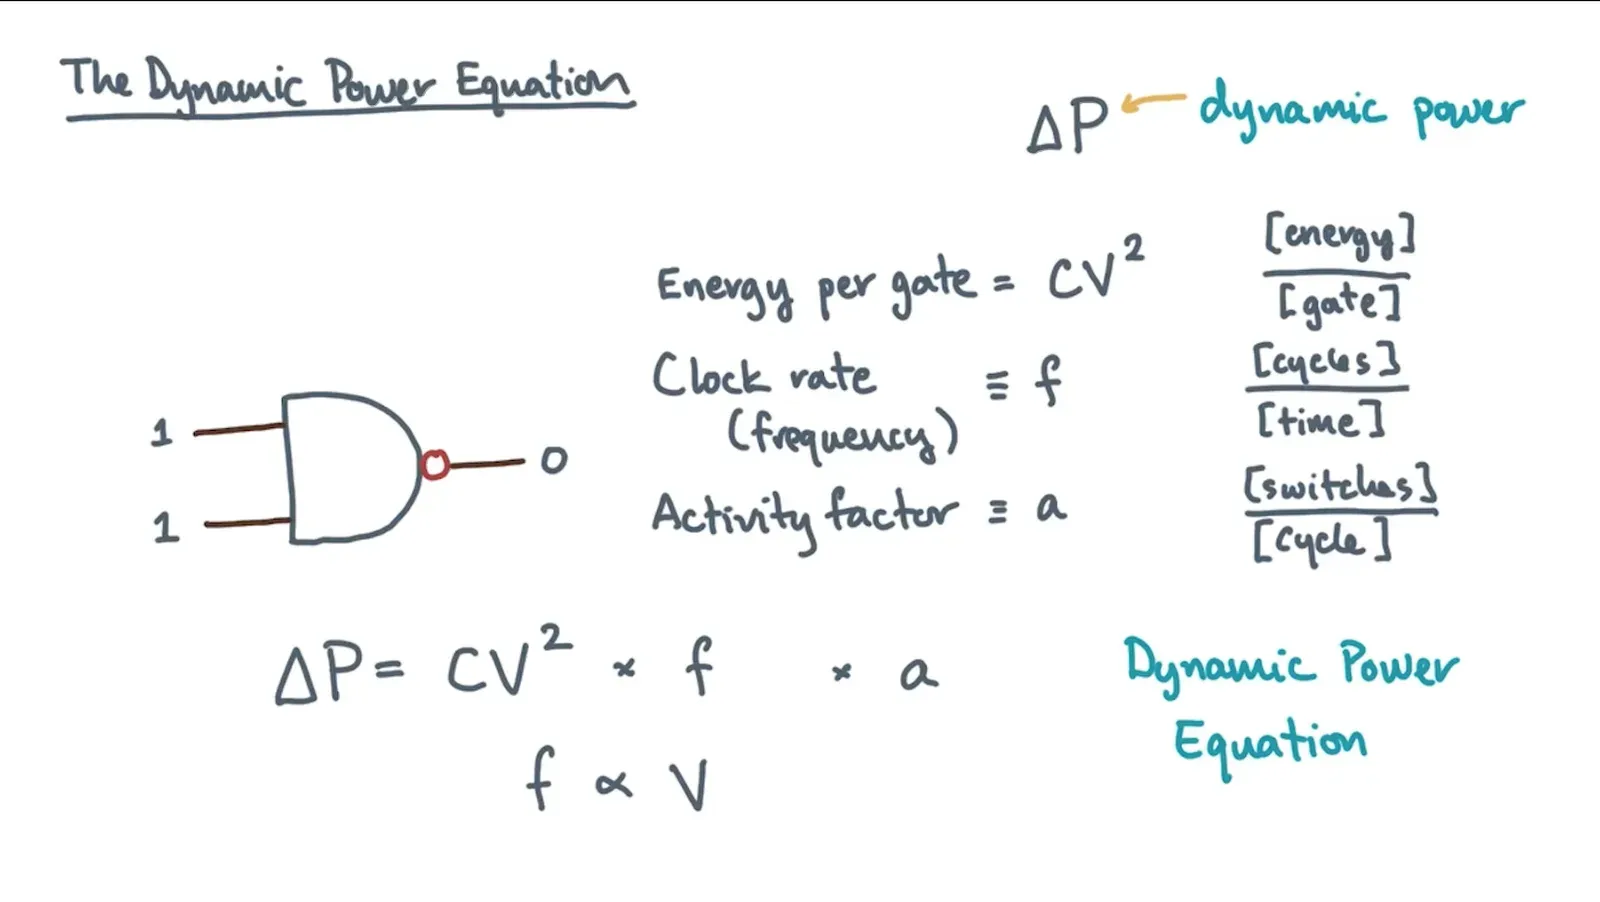 The Dynamic Power Equation
ΔP ← dynamic power
Energy per gate = CV² [energy]/[gate]
Clock rate (frequency) ≡ f [cycles]/[time]
Activity factor ≡ a [switches]/[cycle]
1
1
0
ΔP = CV² * f * a
Dynamic Power
Equation
f ∝ V